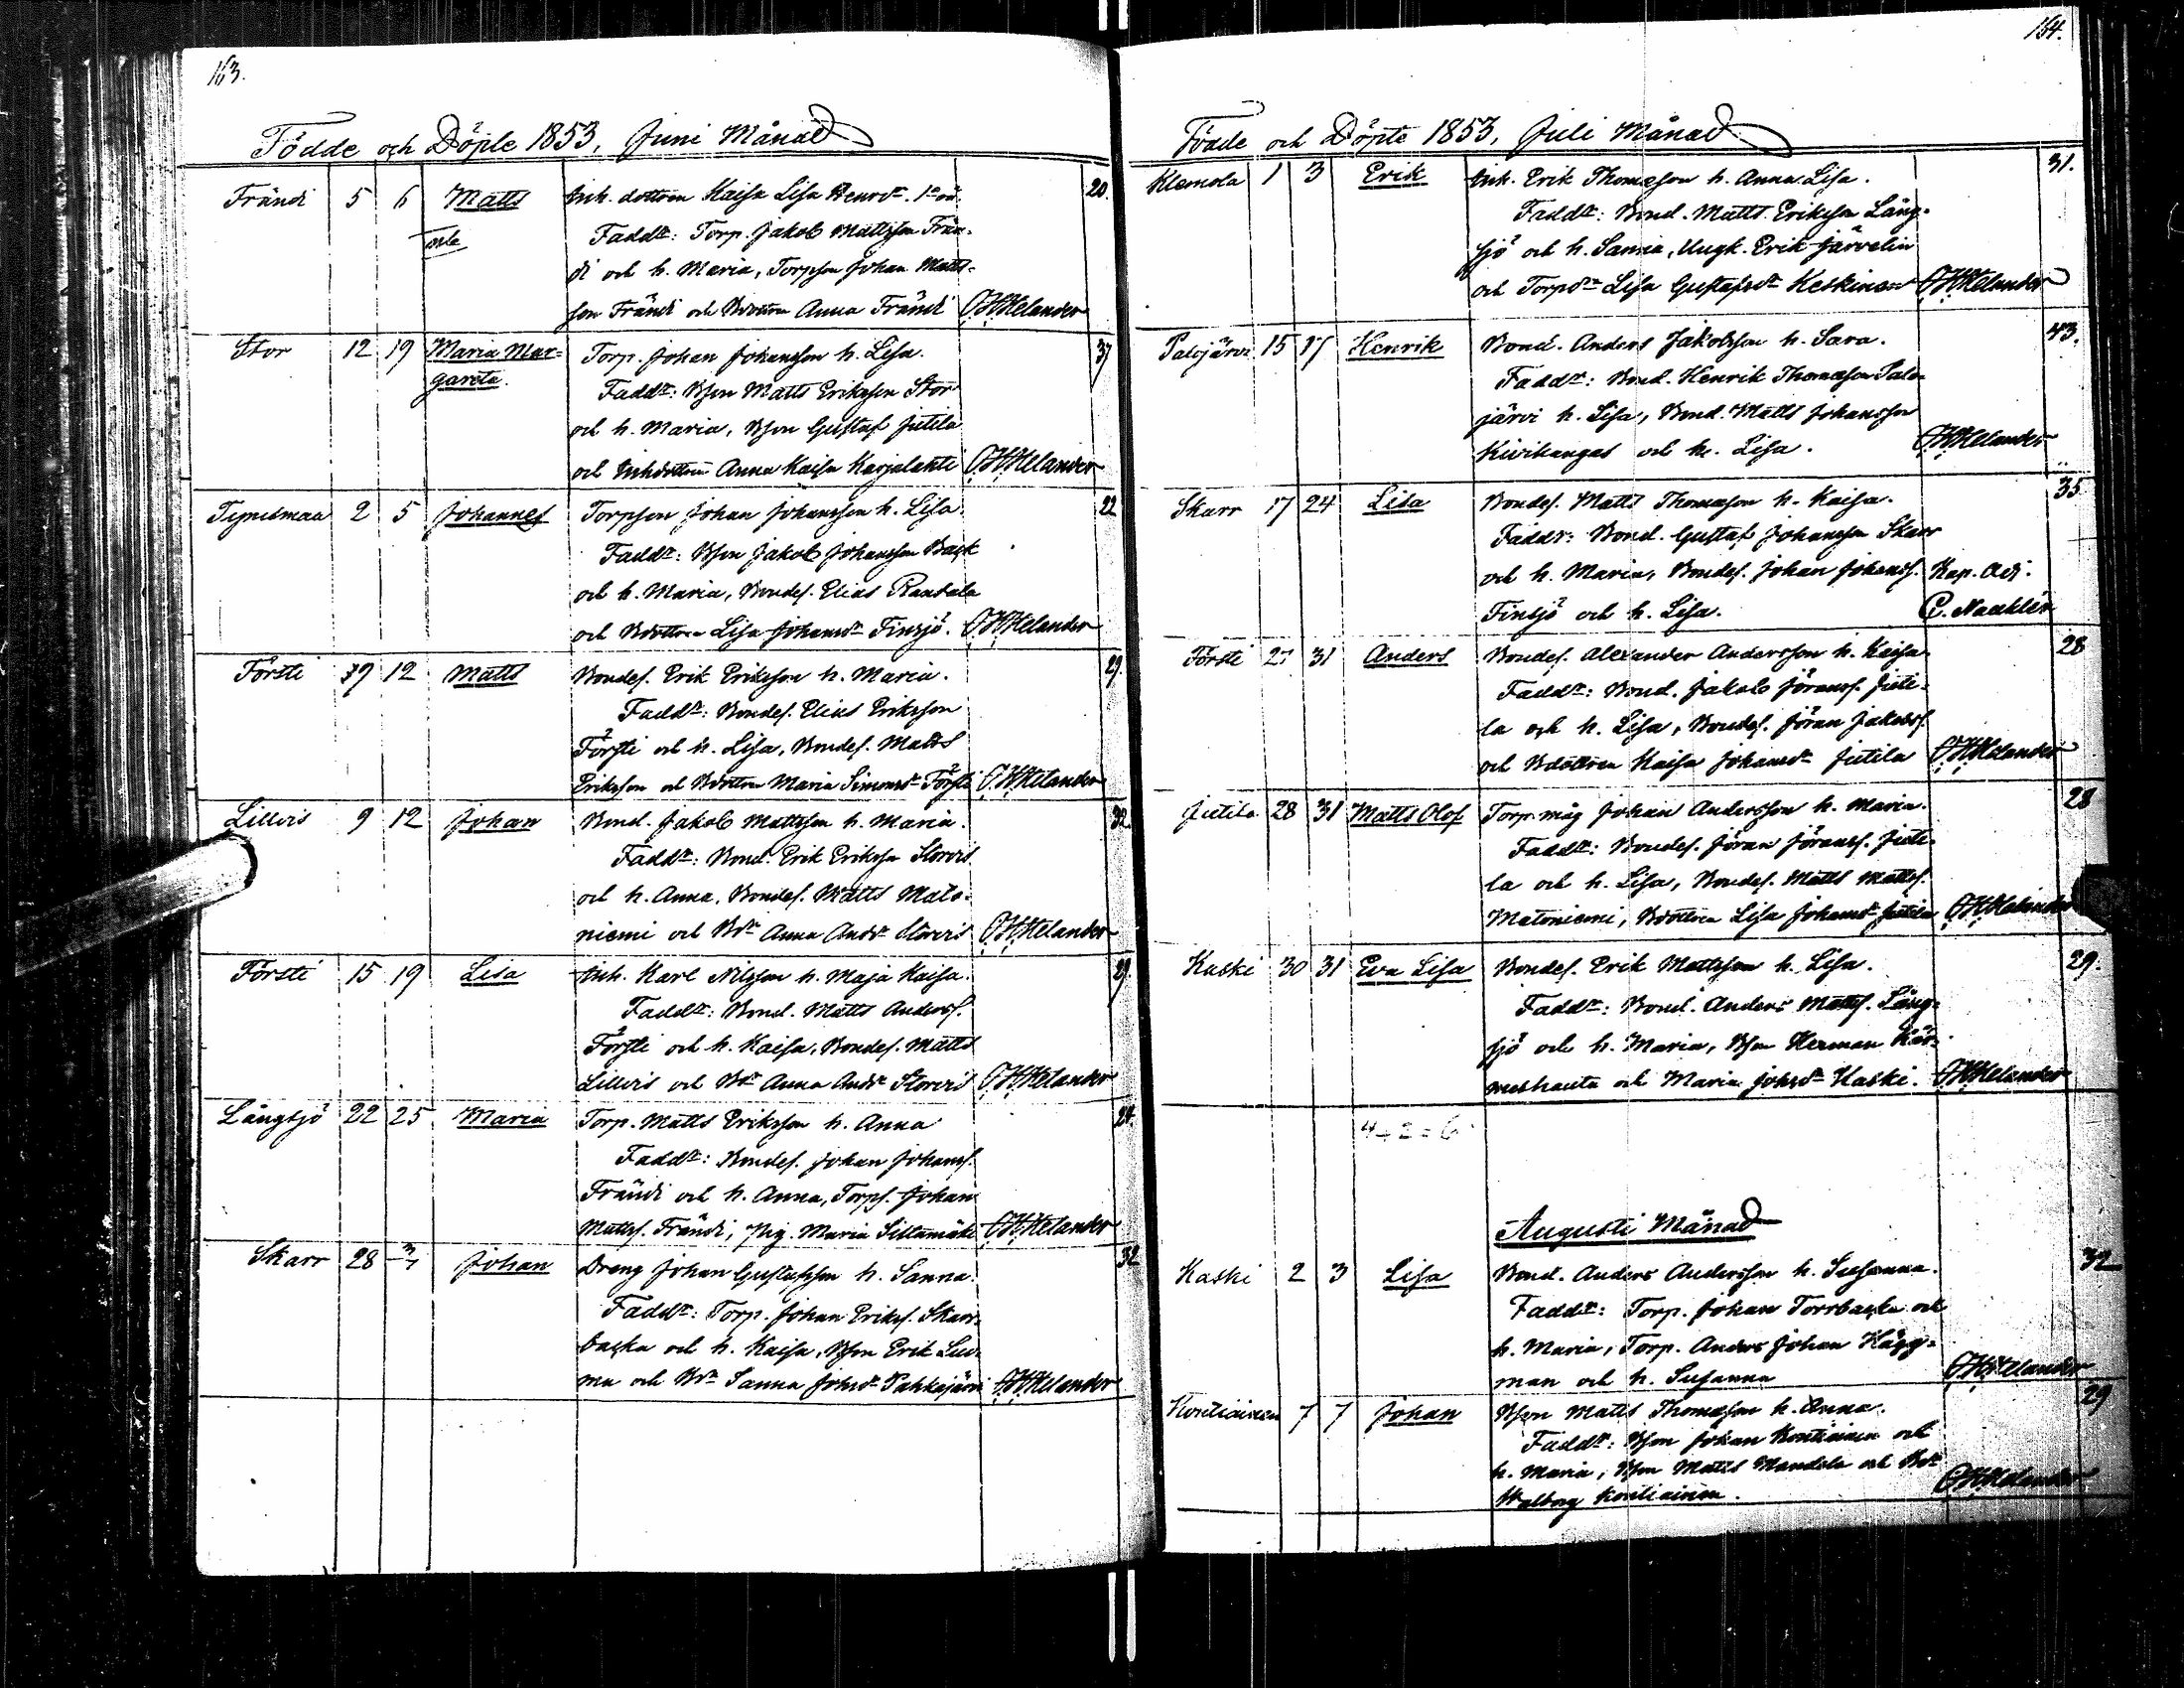 163.
Födde och Döpte 1853, Juni Månad
Frändi 5 6 Matts Inh. dottren Kaisa Lisa Henrdr. 20.
oäk. Faddr: Torp. Jakob Mattsson Frän-
di och h. Maria, Torpson Johan Matts-
son Frändi och Bdottren Anna Frändi O.H.Helander
Stor 12 19 Maria Mar- Torp. Johan Johansson h. Lisa. 37
gareta. Faddr: Bson Matts Eriksson Stor
och h. Maria, Bson Gustaf Jutila
och Inhdottren Anna Kaisa Karjalahti O.H.Helander
Tynismaa 2 5 Johannes Torpson Johan Johansson h. Lisa 22
Faddr: Bson Jakob Johansson Back
och h. Maria, Bondes. Elias Rantala
och Bdottren Lisa Johansdr Finsjö. O.H.Helander
Försti 9 12 Matts Bondes. Erik Eriksson h. Maria. 29.
Faddr: Bondes. Elias Eriksson
Försti och h. Lisa, Bondes. Matts
Eriksson och Bdottren Maria Simonsdr Försti O.H.Helander
Lillvis 9 12 Johan Bond. Jakob Mattsson h. Maria. 32
Faddr: Bond. Erik Eriksson Storvis
och h. Anna, Bondes. Matts Mato-
niemi och Bdr Anna Anddr Storvis O.H.Helander
Försti 15 19 Lisa Inh. Karl Nilsson h. Maja Kaisa. 29
Faddr: Bond. Matts Anderss.
Försti och h. Kaisa, Bondes. Matts
Lillvis och Bdr Anna Anddr Storvis O.H.Helander
Långsjö 22 25 Maria Torp. Matts Eriksson h. Anna 24.
Faddr: Bondes. Johan Johanss.
Frändi och h. Anna, Torps. Johan
Mattss. Frändi, Pig. Maria Sillamäki O.H.Helander
Skarr 28 3/7 Johan Dreng Johan Gustafsson h. Sanna. 32
Faddr: Torp. Johan Erikss. Skarr-
backa och h. Kaisa, Bson Erik
och Bdr Sanna Johsdr Pahkajärvi O.H.Helander
154.
Födde och Döpte 1853, Juli Månad
Klemola 1 3 Erik Inh. Erik Thomasson h. Anna Lisa. 31.
Faddr: Bond. Matts Eriksson Lång-
sjö och h. Sanna, Ungk. Erik Järvelin
och Torpdr Lisa Gustafsdr Keskinen O.H.Helander
Palojärvi 15 17 Henrik Bond. Anders Jakobsson h. Sara. 43.
Faddr: Bond. Henrik Thomasson Palo-
järvi h. Lisa, Bond. Matts Johansson
Kivikangas och h. Lisa. O.H.Helander
Skarr 17 24 Lisa Bondes. Matts Thomasson h. Kaisa. 35
Faddr: Bond. Gustaf Johansson Skarr
och h. Maria, Bondes. Johan Johanss. Kap. Adj.
Finsjö och h. Lisa. C. Naeklér
Försti 27 31 Anders Bondes. Alexander Andersson h. Kaisa 28
Faddr: Bond. Jakob Jöranss. Juti-
la och h. Lisa, Bondes. Jöran Jakobss.
och Bdottren Kaisa Johansdr Jutila O.H.Helander
Jutila 28 31 Matts Olof Torp.måg Johan Andersson h. Maria. 28
Faddr: Bondes. Jöran Jöranss. Juti-
la och h. Lisa, Bondes. Matts Mattss.
Matoniemi, Bdottren Lisa Johansdr Jutila O.H.Helander
Kaski 30 31 Eva Lisa Bondes. Erik Mattsson h. Lisa. 29.
Faddr: Bond. Anders Mattss. Lång-
sjö och h. Maria, Bson Herman Kär-
meshauta och Maria Johsdr Kaski. O.H.Helander
4+2=6
Augusti Månad
Kaski 2 3 Lisa Bond. Anders Andersson h. Susanna. 32
Faddr: Torp. Johan Torrbacka och
h. Maria, Torp. Anders Johan Hägg-
man och h. Susanna O.H.Helander
Kontiainen 7 7 Johan Bson Matts Thomasson h. Anna. 29
Faddr: Bson Johan Kontiainen och
h. Maria, Bson Matts Mandola och Bdr
Walborg Kontiainen. O.H.Helander